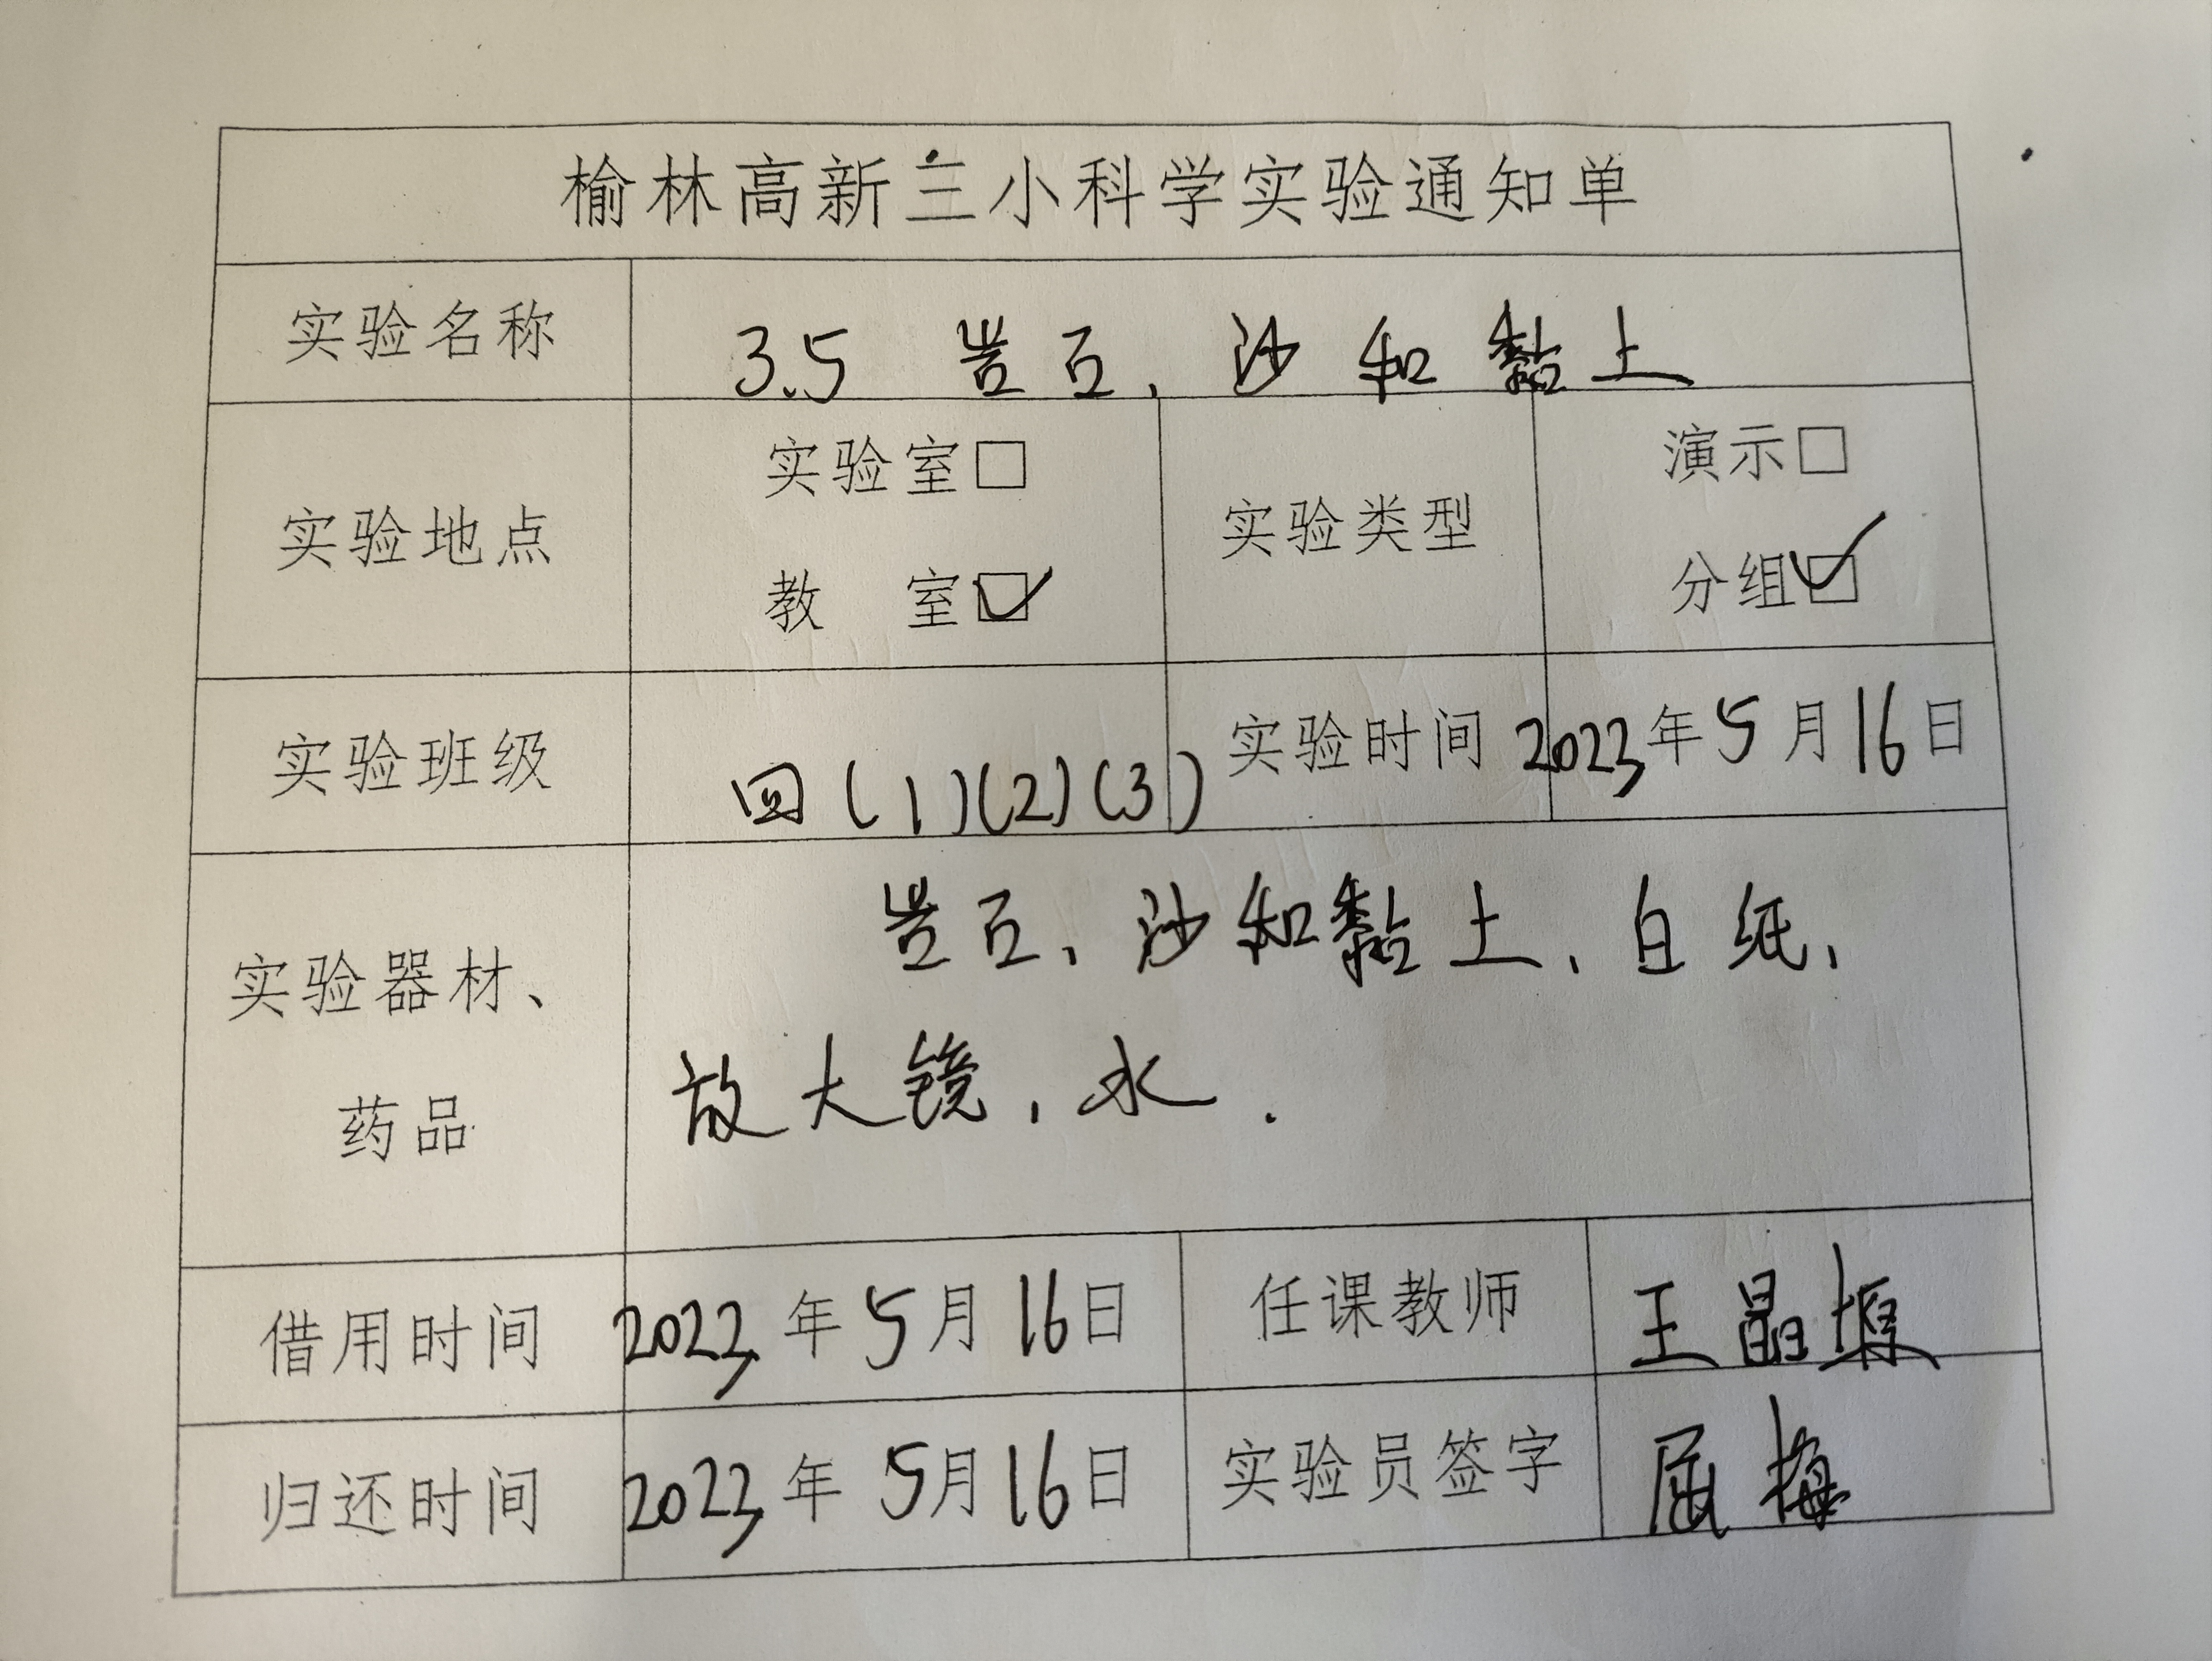 榆林高新三小科学实验通知单
实验名称 3.5 岩石、沙和黏土
实验地点 实验室□ 教 室☑ 实验类型 演示□ 分组☑
实验班级 四(1)(2)(3) 实验时间 2023年5月16日
实验器材、药品 岩石、沙和黏土、白纸、
放大镜、水.
借用时间 2023年5月16日 任课教师 王晶
归还时间 2023年5月16日 实验员签字 屈梅